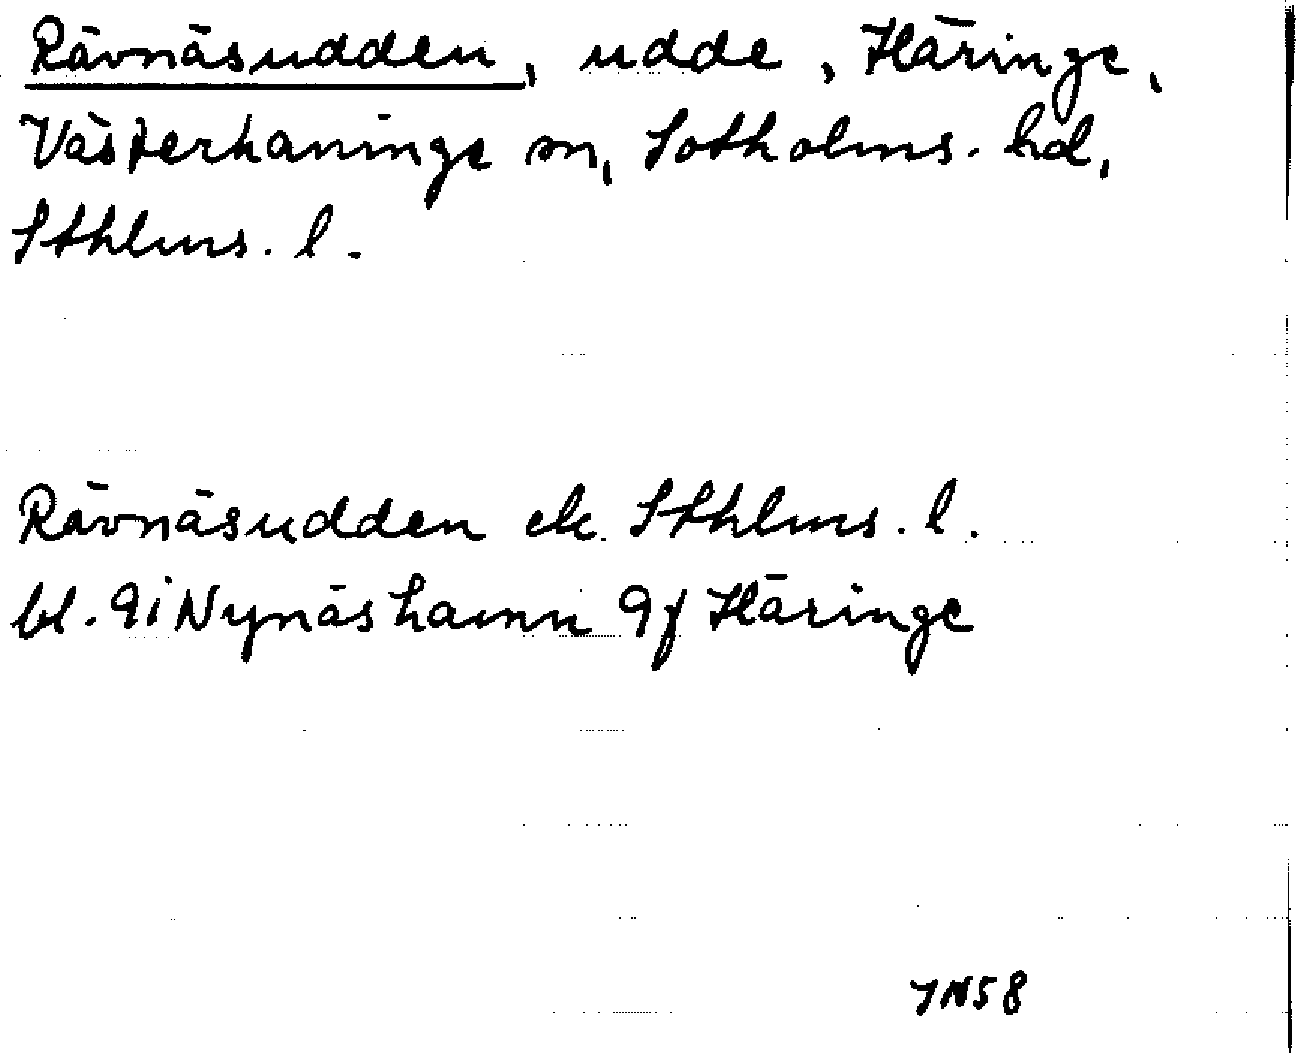 Rävnäsudden, udde, Häringe,
Västerhaninge sn, Sotholms. hd,
Sthlms. l.
Rävnäsudden ek. Sthlms. l.
bl. 9i Nynäshamn 9f Häringe
JN58